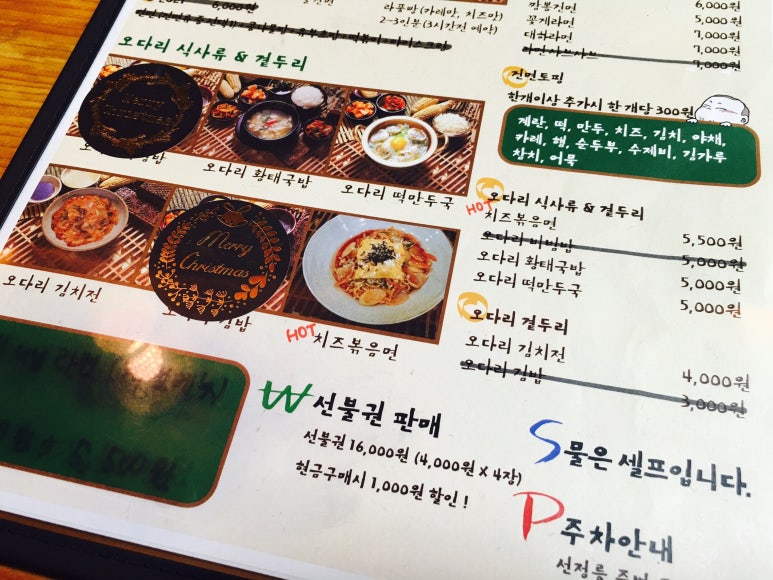 라풍땅 (카레맛, 치즈맛)
2~3인분 (3시간전 예약)
6,000원
짬뽕건면 6,000원
꽃게라면 5,000원
대하라면 7,000원
라면샤브샤브 7,000원
7,000원
건면토핑
한개이상 추가시 한 개당 300원
계란, 떡, 만두, 치즈, 김치, 야채,
카레, 햄, 순두부, 수제비, 김가루
참치, 어묵
오다리 식사류 & 곁두리
Merry Christmas
오다리 황태국밥
오다리 떡만두국
오다리 김치전
Merry
Christmas
김밥
HOT
치즈볶음면
HOT
오다리 식사류 & 곁두리
치즈볶음면 5,500원
오다리 비빔밥 5,000원
오다리 황태국밥 5,000원
오다리 떡만두국 5,000원
오다리 곁두리
오다리 김치전 4,000원
오다리 김밥 3,000원
W 선불권 판매
선불권 16,000원 (4,000원 X 4장)
현금구매시 1,000원 할인 !
S 물은 셀프입니다.
P 주차안내
선정릉